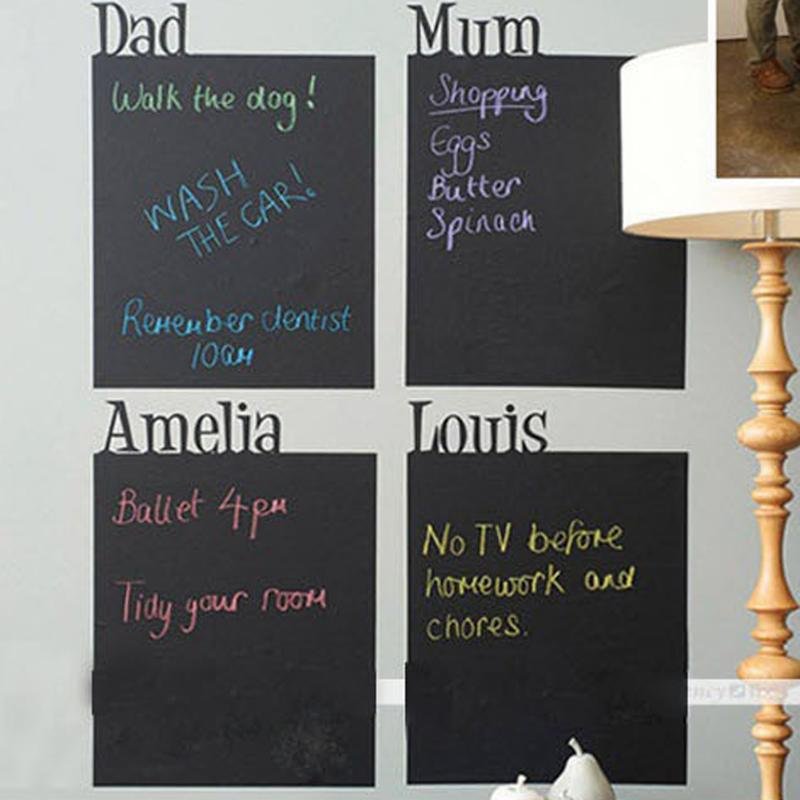 Dad
Walk the dog!
WASH
THE CAR!
Remember dentist
10am
Mum
Shopping
Eggs
Butter
Spinach
Amelia
Ballet 4pm
Tidy your room
Louis
No TV before
homework and
chores.